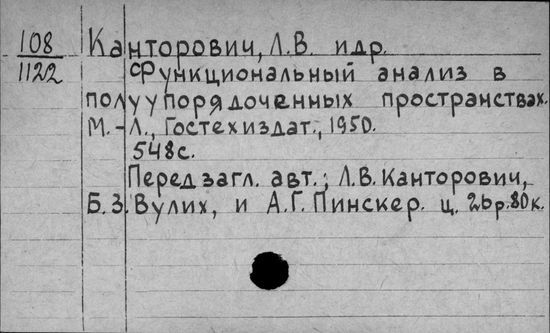 108 Канторович, Л.В. и др.
1122 Функциональный анализ в
полуупорядоченных пространствах.
М.-Л., Гостехиздат., 1950.
548с.
Перед загл. авт.; Л.В. Канторович,
Б.З. Вулих, и А.Г. Пинскер. ц. 26р.80к.